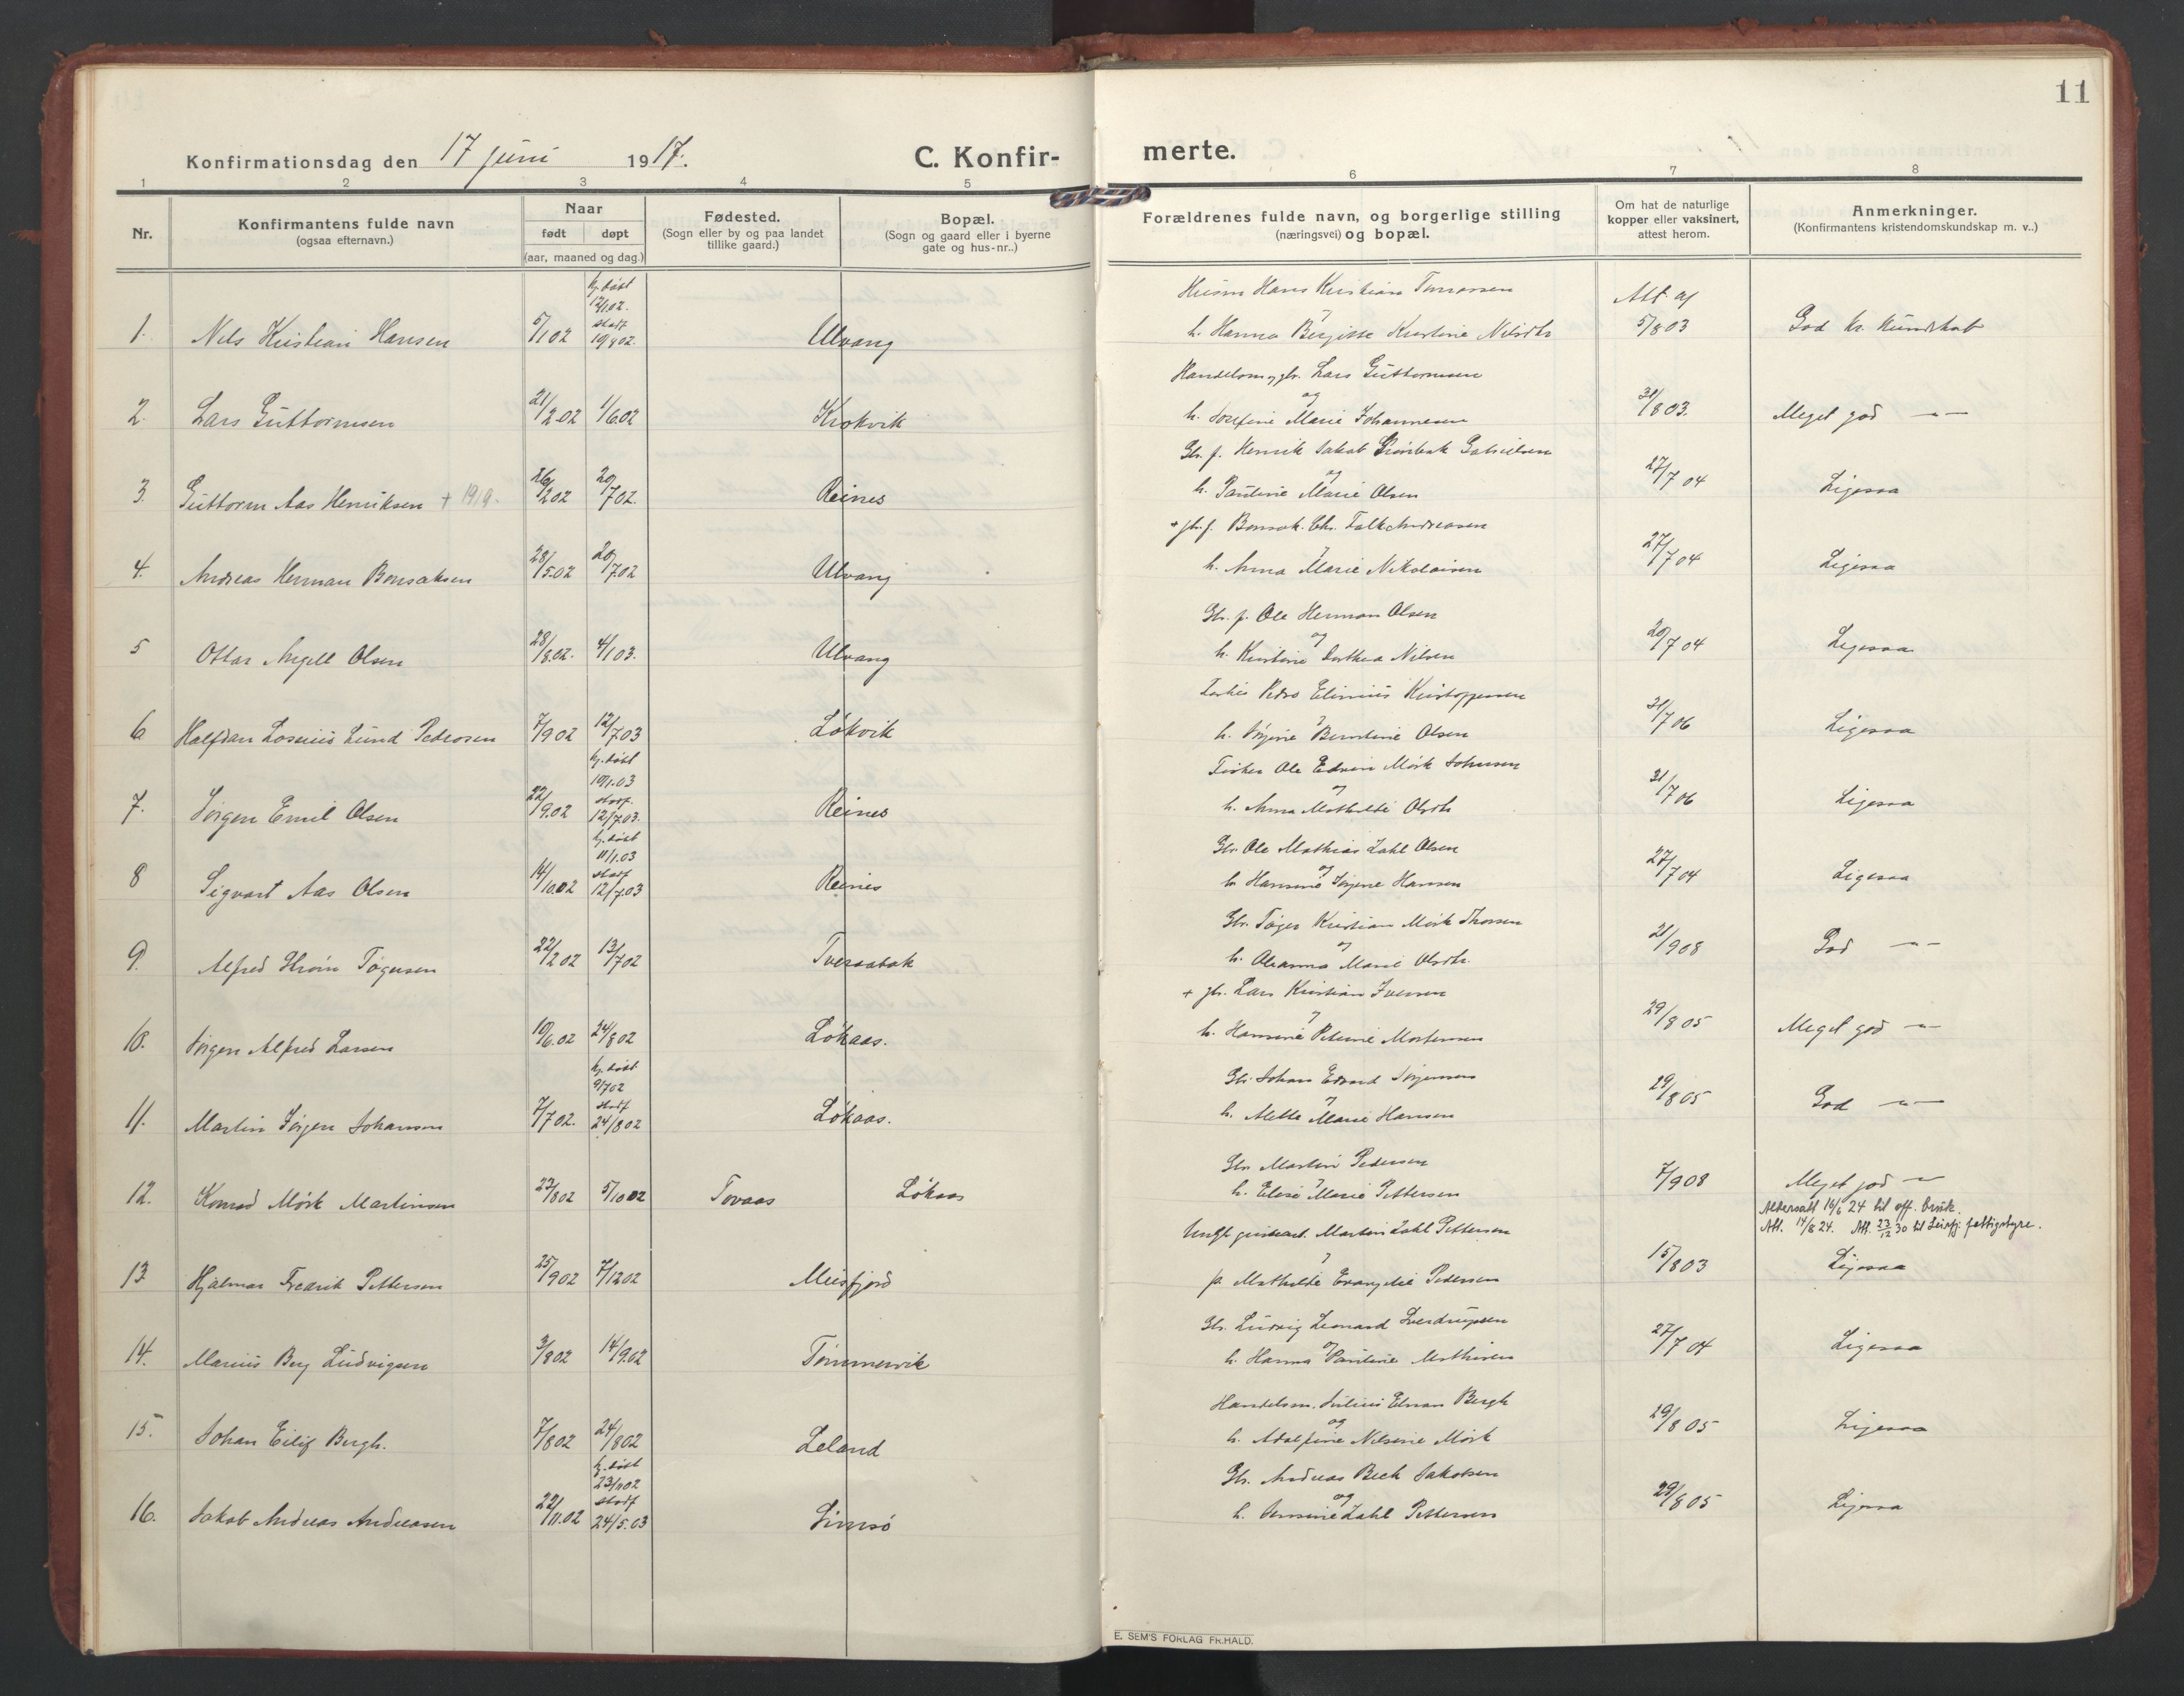 11
Konfirmationsdag den 17 juni 1917.
C. Konfirmerte.
1 2 3 4 5 6 7 8
Nr.
Konfirmantens fulde navn
(ogsaa efternavn.)
Naar
født døpt
(aar, maaned og dag.)
Fødested.
(Sogn eller by og paa landet
tillike gaard.)
Bopæl.
(Sogn og gaard eller i byerne
gate og hus-nr..)
Forældrenes fulde navn, og borgerlige stilling
(næringsvei) og bopæl.
Om hat de naturlige
kopper eller vaksinert,
attest herom.
Anmerkninger.
(Konfirmantens kristendomskundskap m. v..)
hj. døbt
12/1 02.
stadf
1. Nils Kristian Hansen 5/1 02 10/8 02. Ulvang
Husm Hans Kristian
h. Hanna Bergitte Kristine Nilsdtr
Att. af
5/8 03 God kr. kundskab
2. Lars Guttormsen 21/2 02 1/6 02 Krokvik
Handelsm. gbr. Lars Guttormsen
og
h. Josefine Marie Johannesen
31/8 03. Meget god — —
3. Guttorm Aas Henriksen + 1919. 26/2 02 20/7 02. Reines
Gbr. f. Henrik Jakob Grønbek Gabrielsen
og
h. Pauline Marie Olsen
27/7 04 Ligesaa
4. Andreas Herman Bonsaksen 28/5 02 20/7 02 Ulvang
+ gbr. f. Bonsak Chr. Falk Andreasen
h. Anna Marie Nikolaisen
27/7 04 Ligesaa
5 Ottar Angell Olsen 28/8 02. 4/1 03. Ulvang
Gbr. f. Ole Herman Olsen
og
h. Kristine Dorthea Nilsen
20/7 04 Ligesaa
6 Halfdan Losius Lund Pedersen 7/9 02 12/7 03 Løkvik
Pedro Elimius Kristoffersen
h. Jørgine Berntine Olsen
31/7 06 Ligesaa
hj. døbt
10/1 03
stadf.
7. Jørgen Emil Olsen 22/9 02 12/7 03. Reines
Fisker Ole Edvin Mørk Johnsen
og
h. Anna Mathilde Olsdtr
31/7 06 Ligesaa
hj. døbt
11/1 03
stadf
8 Sigvart Aas Olsen 14/10 02 12/7 03 Reines
Gbr Ole Mathias Zahl Olsen
og
h Hansine Jørgine Hansen
27/7 04 Ligesaa
9. Alfred Strøm Tøgersen 22/2 02 13/7 02 Tveraabak
Gbr. Tøger Kristian Mørk Thorsen
og
h. Oleanna Marie Olsdtr.
21/9 08 God — —
10. Jørgen Alfred Larsen 10/6 02 24/8 02 Løkaas.
+ gbr. Lars Kristian Iversen
h. Hansine Petrine Mortensen
29/8 05 Meget god —
hj. døbt
9/7 02
stadf
11. Martin Jørgen Johansen 7/7 02. 24/8 02 Løkaas.
Gbr. Johan Edvard Jørgensen
h. Mette Marie Hansen
29/8 05 God — —
12. Konrad Mørk Martinsen 23/8 02 5/10 02 Tovaas Løkaas
Gbr Martin Pedersen
h. Elise Marie Pettersen
7/9 08 Meget god —
Aldersatt 16/6 24 til off. bruk.
Att. 14/8 24. Att. 23/12 30 til Leirfj. fattigstyre.
13 Hjalmar Fredrik Pettersen 25/9 02 7/12 02 Meisfjord
Ungk. Martin Zahl Pettersen
p. Mathilde Evangelie Pedersen
15/8 03 Ligesaa
14. Marius Berg Ludvigsen 3/8 02 14/9 02 Tømmervik
Gbr. Ludvig Leonard Sverdrupsen
og
h. Hanna Pauline Mathisen
27/7 04 Ligesaa
15. Johan Eilif Bergh. 7/8 02 24/8 02 Leland
Handelsm. Julius Elnan Bergh
og
h. Adolfine Nilsine Mørk
29/8 05 Ligesaa
hj. døbt
23/11 02
stadf
16. Jakob Andreas Andreasen 22/11 02 24/5 03 Simsø
Gbr. Andreas Bech Jakobsen
og
h. Zahl Pettersen
29/8 05 Ligesaa
E. SEM'S FORLAG FR.HALD.